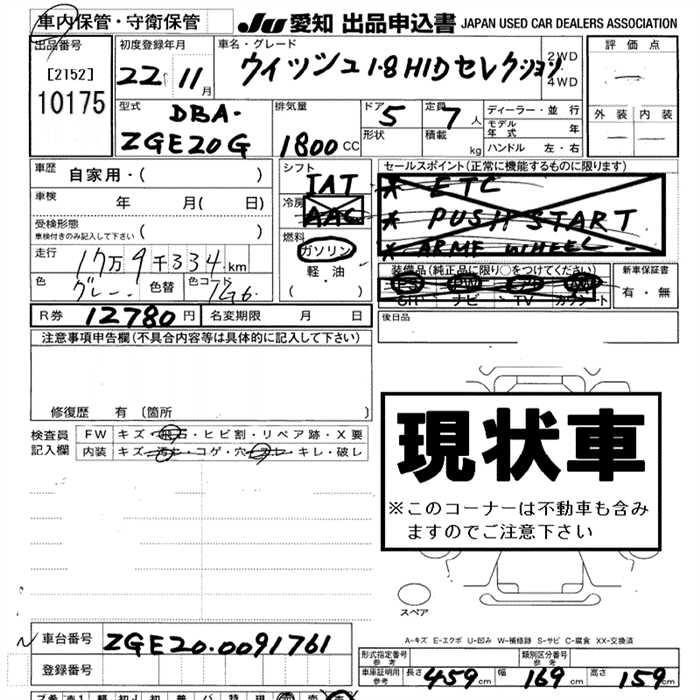 車内保管・守衛保管 JU 愛知 出品申込書 JAPAN USED CAR DEALERS ASSOCIATION
出品番号 初度登録年月 車名・グレード 評価点
[2152] 22年 11月 ウィッシュ1.8HIDセレクション 2WD 4WD
10175
型式 排気量 ドア 5 定員 7人 ディーラー・並行 外装 内装
DBA- 形状 積載 kg モデル年式 年
ZGE20G 1800CC ハンドル 左・右
車歴 自家用・( ) シフト セールスポイント(正常に機能するものに限ります)
IAT * ETC
車検 年 月( 日) 冷房 AAC * PUSH START
受検形態 ( )
車検付きのみ記入して下さい 燃料 * ARMF WHEEL
走行 17万9千334km ガソリン 装備品(純正品に限り○をつけてください) 新車保証書
色 グレー 色替 色コード 1G6 軽・油 PS PW AW 有・無
(・) SR ナビ TV カワシート
R券 12780円 名変期限 月 日 後日品
注意事項申告欄(不具合内容等は具体的に記入して下さい)
修復歴 有 〔箇所 〕
検査員 FW キズ・飛石・ヒビ割・リペア跡・X要
記入欄 内装 キズ・汚れ・コゲ・穴・スレ・キレ・破レ
現状車
※このコーナーは不動車も含み
ますのでご注意下さい
スペア
A-キズ E-エクボ U-凹み W-補修跡 S-サビ C-腐食 XX-交換済
車台番号 ZGE20-0091761
登録番号
形式指定番号 参考 類別区分番号 参考
車庫証明用 参考 長さ 459cm 幅 169cm 高さ 159cm